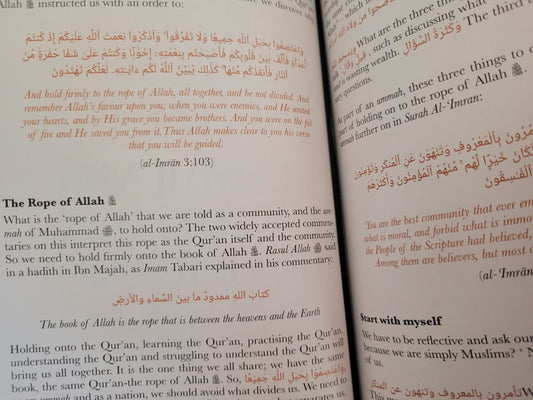 Allah ﷻ instructed us with an order to:
وَاعْتَصِمُوا بِحَبْلِ اللَّهِ جَمِيعًا وَلَا تَفَرَّقُوا ۚ وَاذْكُرُوا نِعْمَتَ اللَّهِ عَلَيْكُمْ إِذْ كُنتُمْ
أَعْدَاءً فَأَلَّفَ بَيْنَ قُلُوبِكُمْ فَأَصْبَحْتُم بِنِعْمَتِهِ إِخْوَانًا وَكُنتُمْ عَلَىٰ شَفَا حُفْرَةٍ مِّنَ
النَّارِ فَأَنقَذَكُم مِّنْهَا ۗ كَذَٰلِكَ يُبَيِّنُ اللَّهُ لَكُمْ آيَاتِهِ لَعَلَّكُمْ تَهْتَدُونَ
And hold firmly to the rope of Allah, all together, and be not divided. And
remember Allah's favour upon you; when you were enemies, and He united
your hearts, and by His grace you became brothers. And you were on the pit
of fire and He saved you from it. Thus Allah makes clear to you his verse
that you will be guided.
(al-Imrān 3:103)
The Rope of Allah ﷻ
What is the 'rope of Allah' that we are told as a community, and the um-
mah of Muhammad ﷺ, to hold onto? The two widely accepted commen-
taries on this interpret this rope as the Qur'an itself and the community.
So we need to hold firmly onto the book of Allah ﷻ. Rasul Allah ﷺ said
in a hadith in Ibn Majah, as Imam Tabari explained in his commentary:
كتابُ اللهِ ممدودٌ ما بينَ السَّماءِ والأرضِ
The book of Allah is the rope that is between the heavens and the Earth
Holding onto the Qur'an, learning the Qur'an, practising the Qur'an,
understanding the Qur'an and struggling to understand the Qur'an will
bring us all together. It is the one thing we all share; we have the same
book, the same Qur'an-the rope of Allah ﷻ. So, وَاعْتَصِمُوا بِحَبْلِ اللَّهِ جَمِيعًا,
ummah and as a nation, we should avoid what divides us. We need to
What are the three things
, such as discussing what
is wasting wealth. وَكَثْرَةَ السُّؤَالِ The third
ry questions.
part of an ummah, these three things to
part of holding on to the rope of Allah ﷻ.
ummah further on in Surah Al-'Imran:
تَأْمُرُونَ بِالْمَعْرُوفِ وَتَنْهَوْنَ عَنِ الْمُنكَرِ وَتُؤْمِنُونَ
لَكَانَ خَيْرًا لَّهُم ۚ مِّنْهُمُ الْمُؤْمِنُونَ وَأَكْثَرُهُمُ
الْفَاسِقُونَ
'You are the best community that ever
what is moral, and forbid what is immo
the People of the Scripture had believed,
Among them are believers, but most
(al-'Imrah
Start with myself
We have to be reflective and ask our
because we are simply Muslims? '
تَأْمُرُونَ بِالْمَعْرُوفِ وَتَنْهَوْنَ عَنِ الْمُنكَرِ